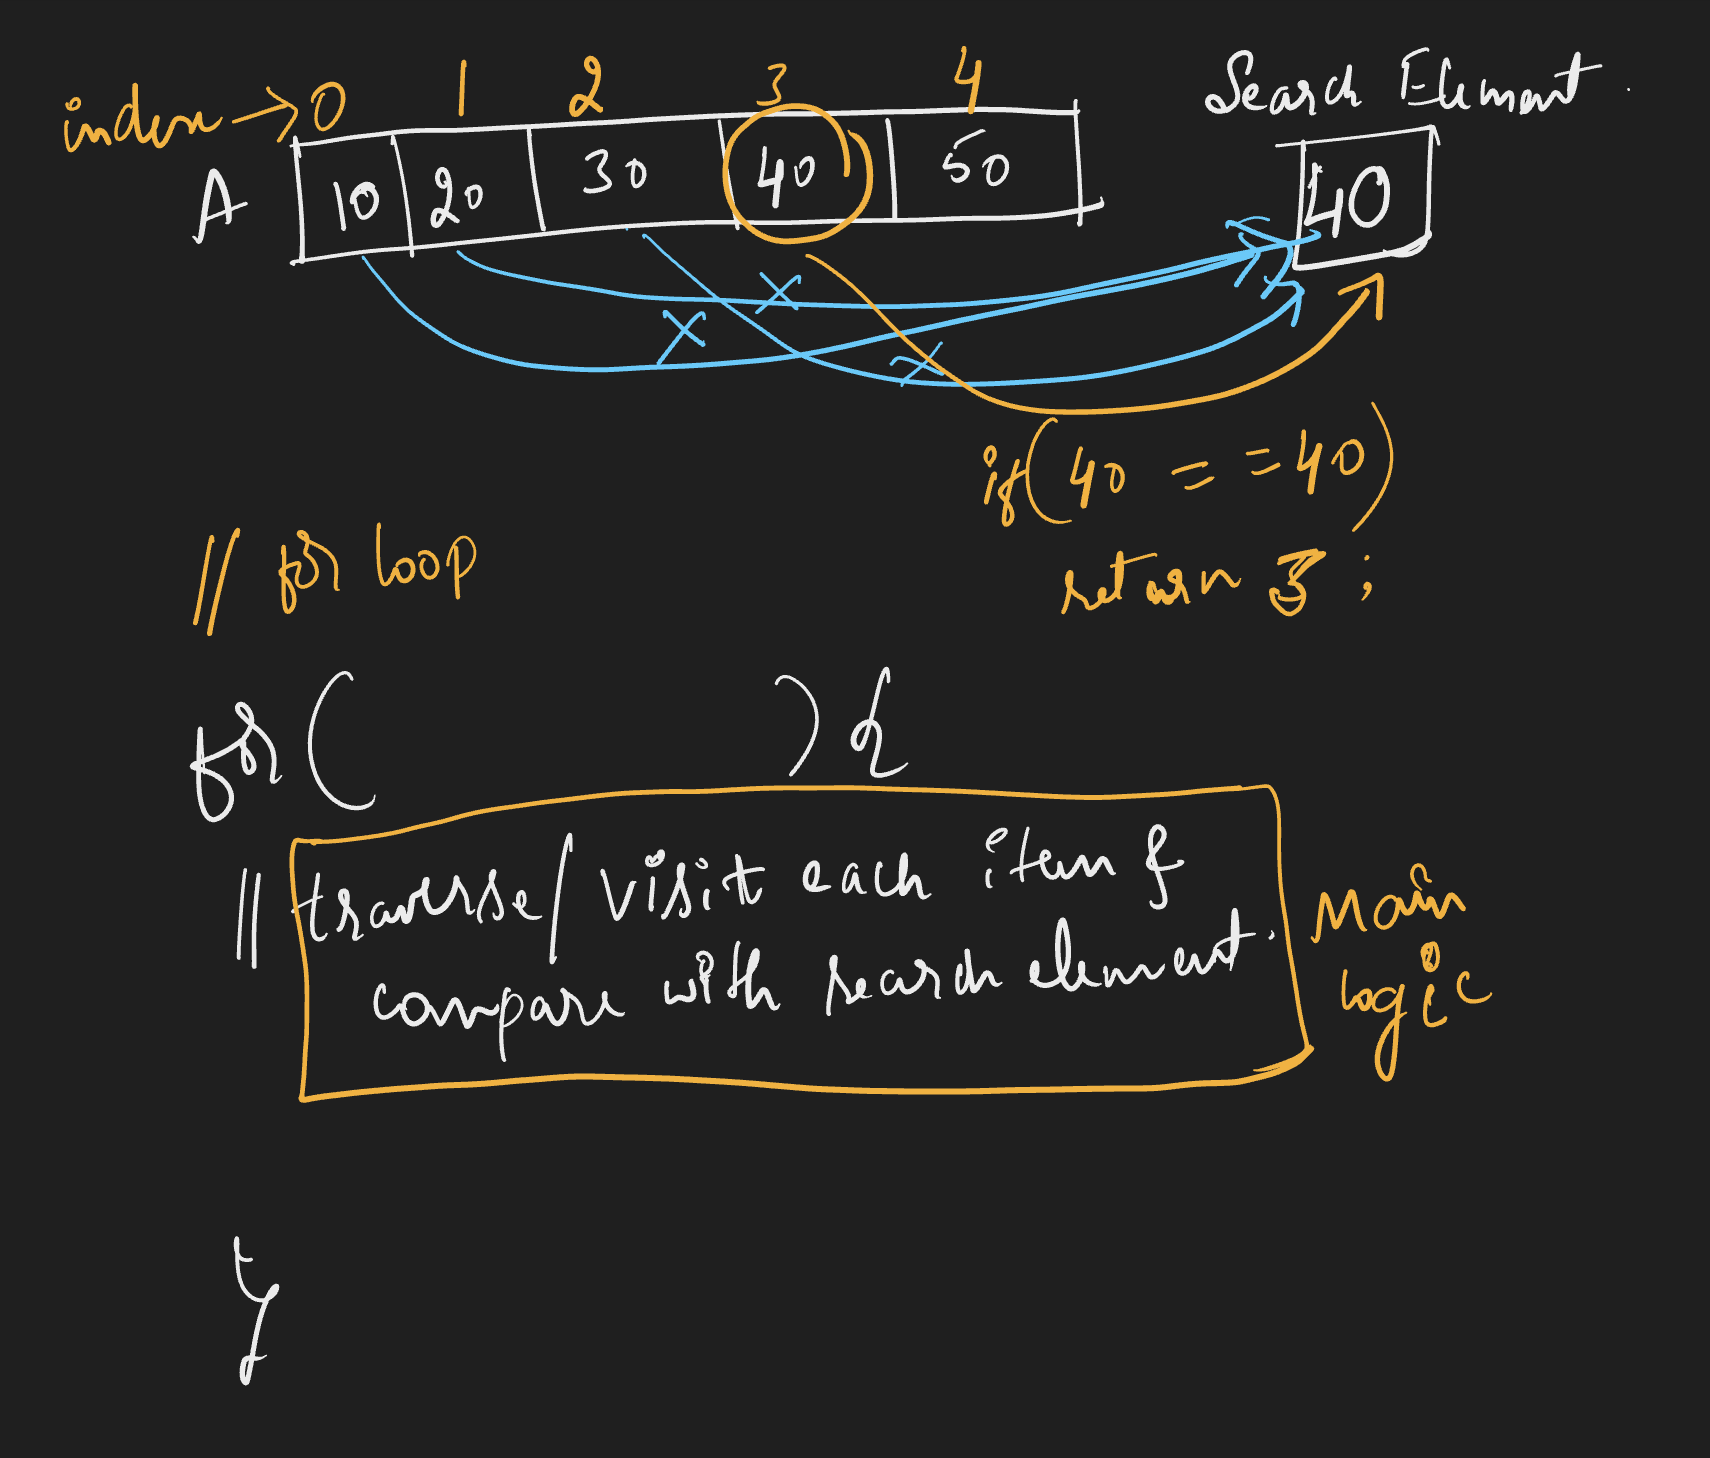 index → 0 1 2 3 4
Search Element
A 10 20 30 40 50
40
if(40 = = 40)
return 3 ;
// for loop
for ( ) {
// traverse / visit each item &
compare with search element.
Main
logic
}